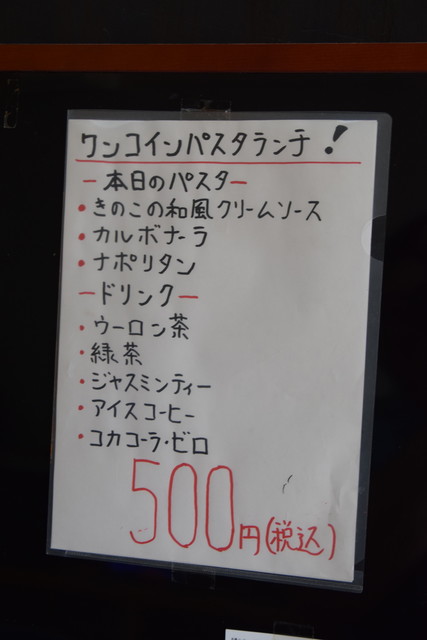 ワンコインパスタランチ！
ー本日のパスター
・きのこの和風クリームソース
・カルボナーラ
・ナポリタン
ードリンクー
・ウーロン茶
・緑茶
・ジャスミンティー
・アイスコーヒー
・コカコーラ・ゼロ
500円(税込)